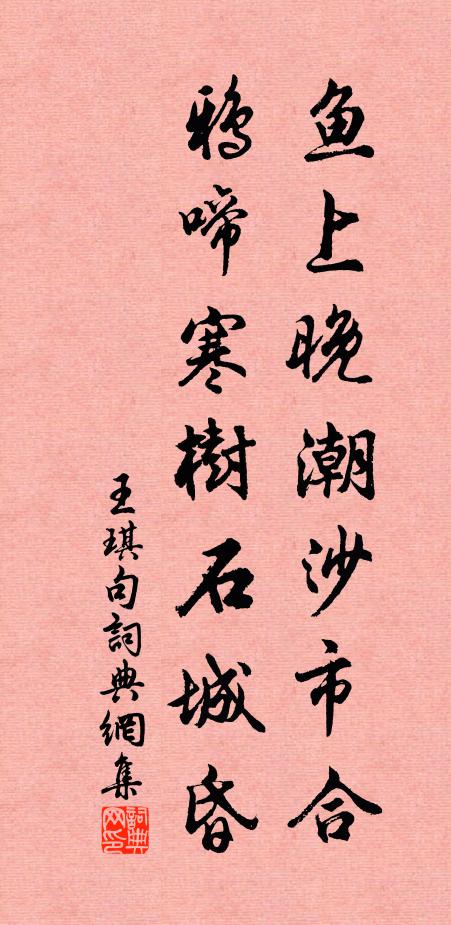 鱼上晚潮沙市合
鸦啼寒樹石城昏
王琪句詞典網集
詞典网印